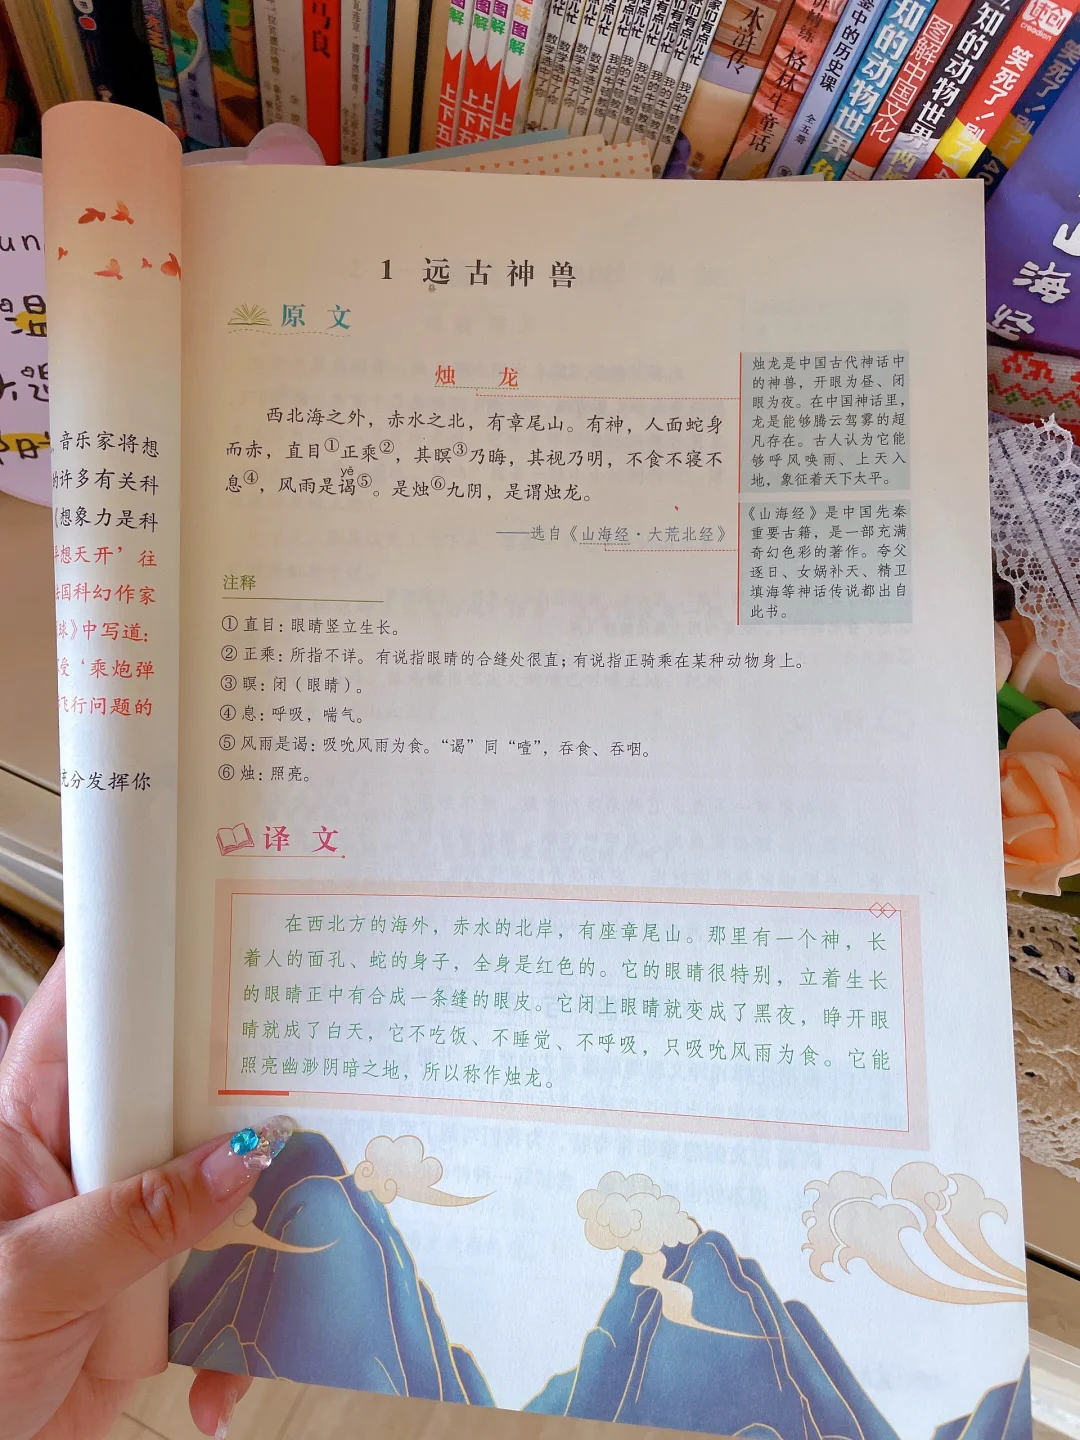 马良
图解
图解
图解
趣味图解
上下五
上下五
上下五
水浒传
格林童话
鉴中的历史课
全五册
知的动物世界
图解中国文化
知的动物世界
读创
creadion
笑死了！别
山海经
音乐家将想
许多有关科
想象力是科
想天开’往
国科幻作家
球》中写道：
受‘乘炮弹
飞行问题的
充分发挥你
1 远古神兽
原文
烛龙
西北海之外，赤水之北，有章尾山。有神，人面蛇身
而赤，直目①正乘②，其瞑③乃晦，其视乃明，不食不寝不
yē
息④，风雨是谒⑤。是烛⑥九阴，是谓烛龙。
——选自《山海经·大荒北经》
烛龙是中国古代神话中
的神兽，开眼为昼、闭
眼为夜。在中国神话里，
龙是能够腾云驾雾的超
凡存在。古人认为它能
够呼风唤雨、上天入
地，象征着天下太平。
《山海经》是中国先秦
重要古籍，是一部充满
奇幻色彩的著作。夸父
逐日、女娲补天、精卫
填海等神话传说都出自
此书。
注释
①直目：眼睛竖立生长。
②正乘：所指不详。有说指眼睛的合缝处很直；有说指正骑乘在某种动物身上。
③瞑：闭（眼睛）。
④息：呼吸，喘气。
⑤风雨是谒：吸吮风雨为食。“谒”同“噎”，吞食、吞咽。
⑥烛：照亮。
译文
在西北方的海外，赤水的北岸，有座章尾山。那里有一个神，长
着人的面孔、蛇的身子，全身是红色的。它的眼睛很特别，立着生长
的眼睛正中有合成一条缝的眼皮。它闭上眼睛就变成了黑夜，睁开眼
睛就成了白天，它不吃饭、不睡觉、不呼吸，只吸吮风雨为食。它能
照亮幽渺阴暗之地，所以称作烛龙。